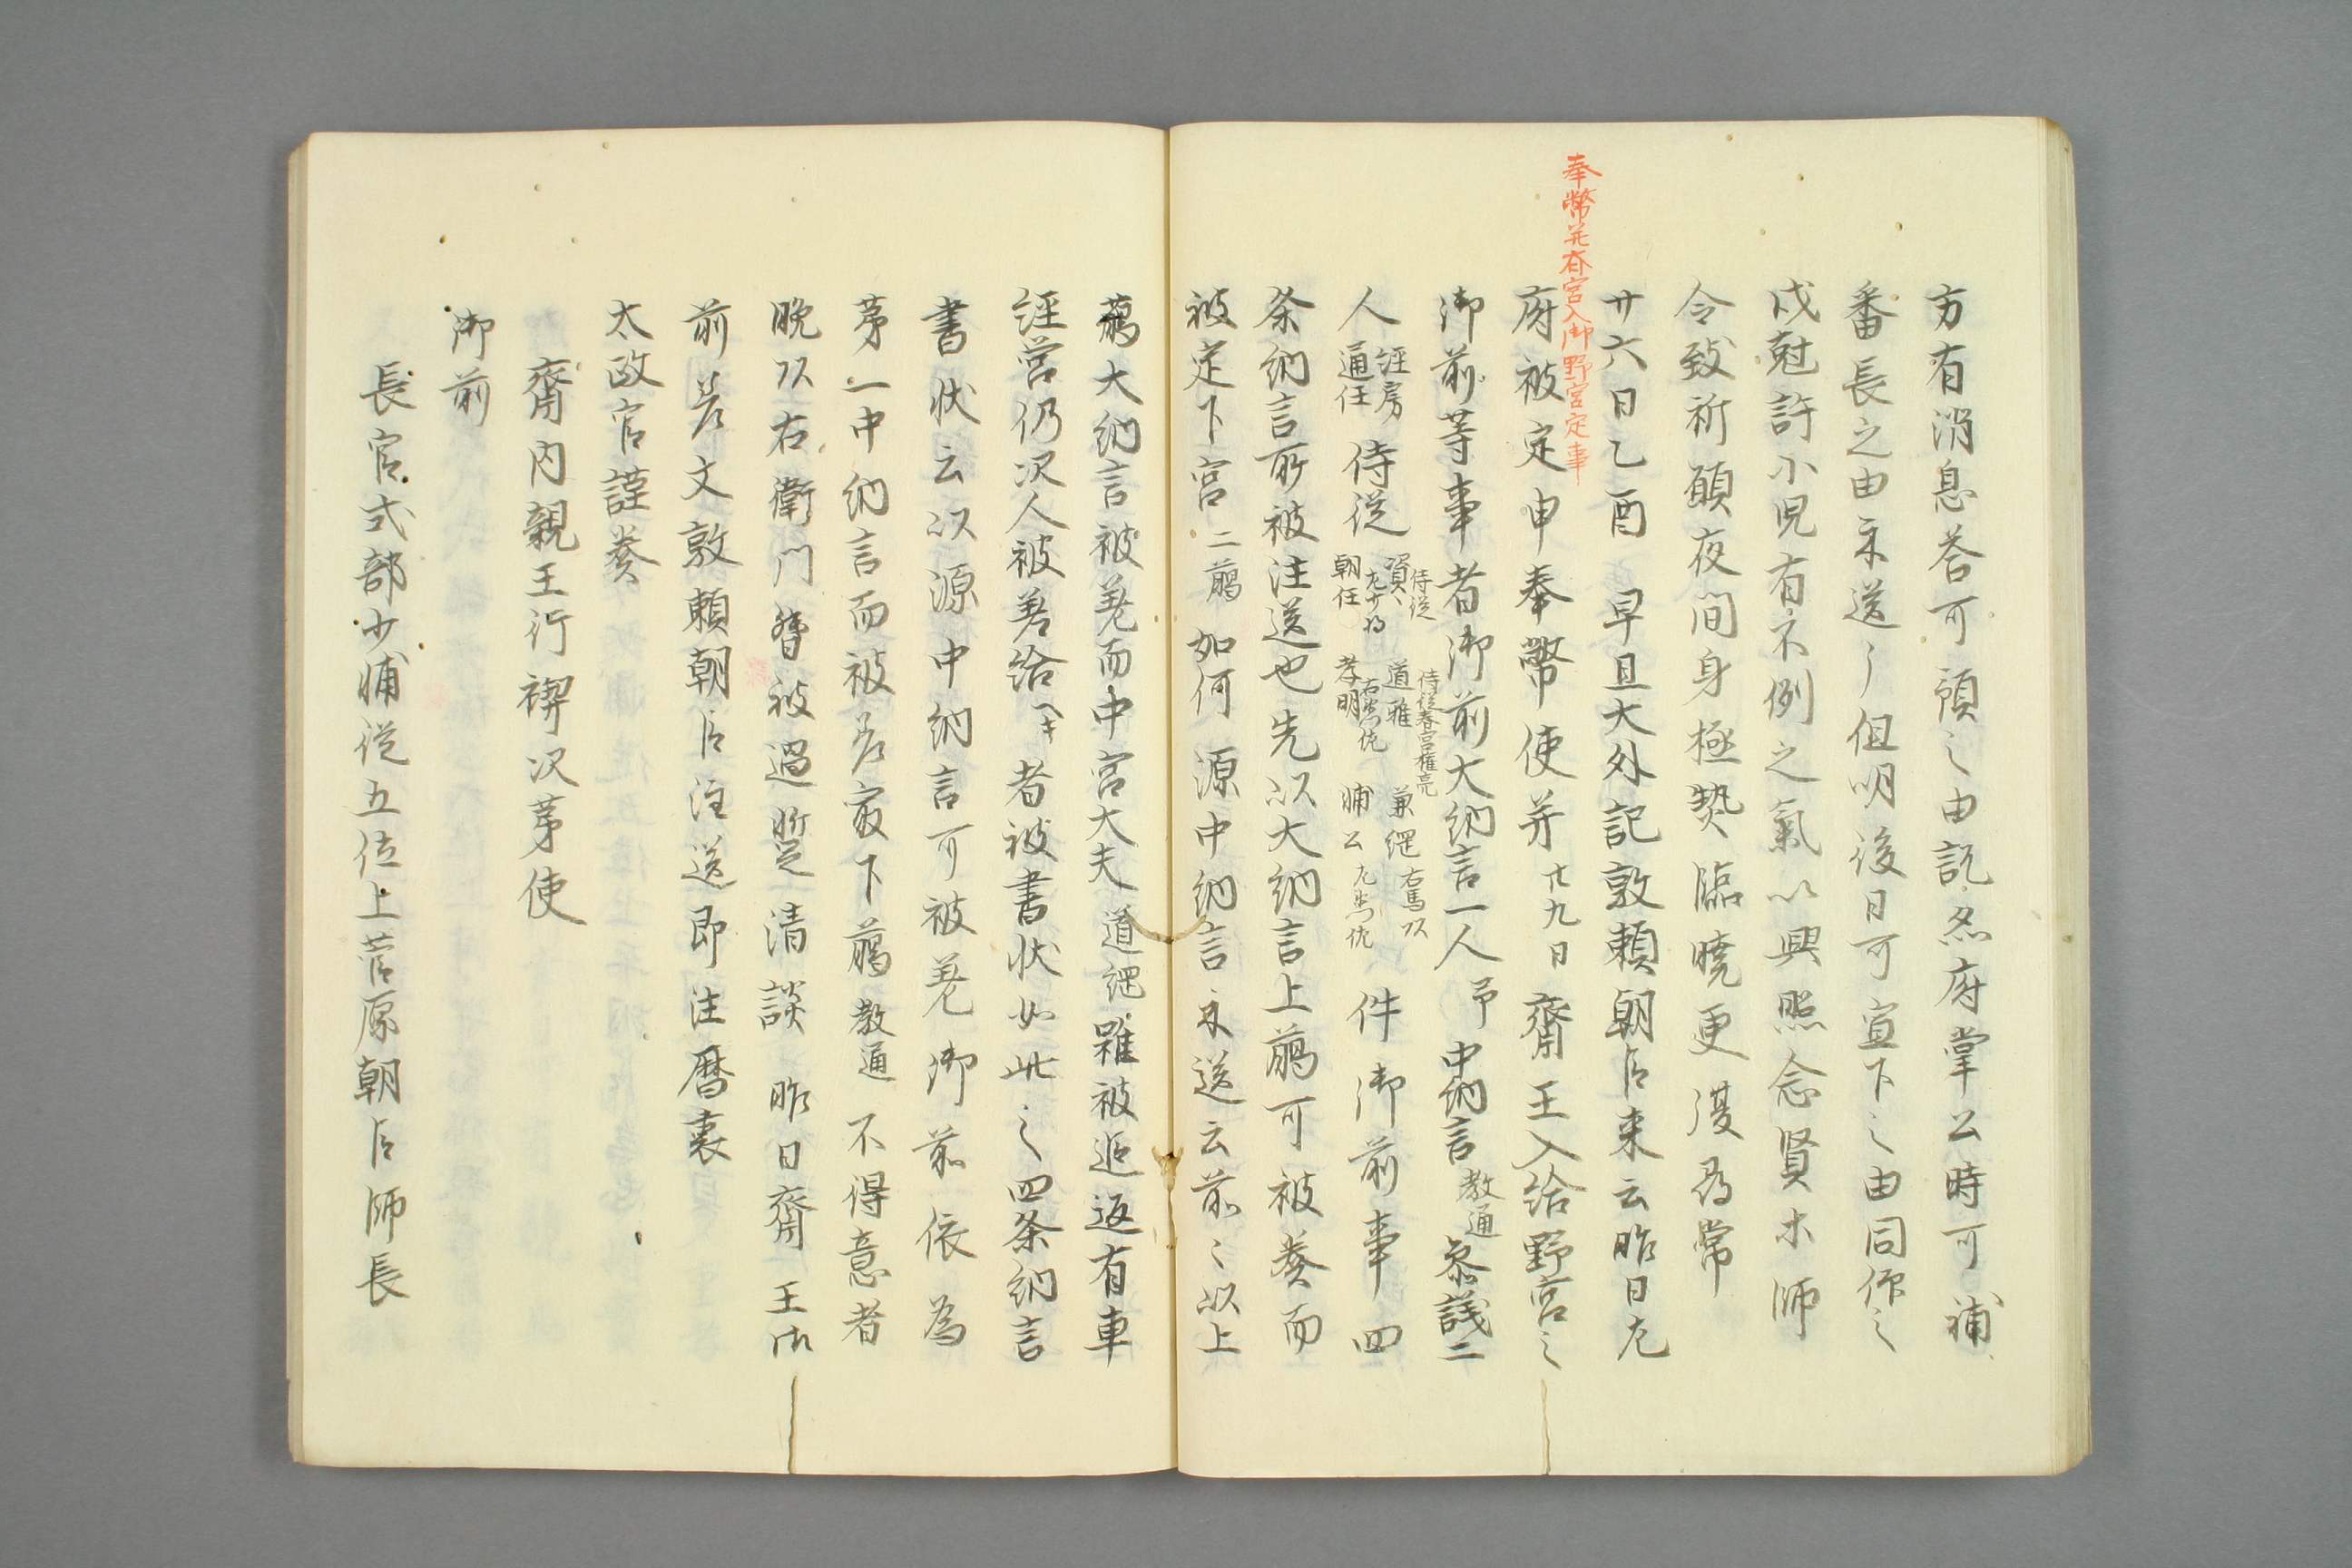 方有消息荅可預之由訖然府掌公時可補
番長之由示送了但明後日可宣下之由同作之
戌尅許小児有不例之氣以興照念賢木師
令致祈願夜間身極熱臨暁更復尋常
奉幣并斎宮入御野宮定事
廿六日乙酉 早旦大外記敦頼朝臣来云昨日左
府被定申奉幣使并廿九日齋王入給野宮之
御前等事者御前大納言一人予中納言教通參議二
人經房通任侍従資〻侍従朝任左少将道雅侍従春宮権亮孝明右兵佐兼綱右馬頭輔公左兵佐件御前事四
条納言所被注送也先以大納言上﨟可被奏而
被定下宮二﨟如何源中納言示送云前〻以上
﨟大納言被差而中宮大夫道綱雖被追返有車
經営仍次人被差給へキ者被書状如此之四条納言
書状云以源中納言可被差御前依為
第一中納言而被差最下﨟教通不得意者
晩頭右衛門督被過暫清談 昨日齋王御
前差文敦頼朝臣注送即注暦裏
太政官謹奏
齋内親王行禊次第使
御前
長官式部少輔従五位上菅原朝臣師長